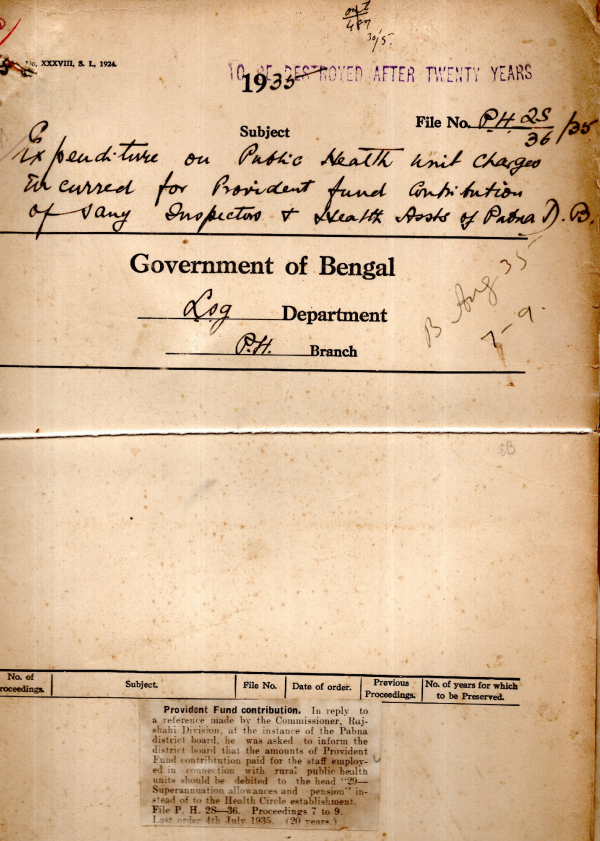 out
487
30/5.
No. XXXVIII, S. L., 1924.
TO BE DESTROYED AFTER TWENTY YEARS
1935
Subject
File No. P.H. 2S/36/35
Expenditure on Public Health unit charges
incurred for Provident fund Contribution
of Sany Inspectors & Health Assts of Pabna D.B.
Government of Bengal
Lsg Department
P.H. Branch
B Aug 35
7-9.
No. of Proceedings.
Subject.
File No.
Date of order.
Previous Proceedings.
No. of years for which to be Preserved.
Provident Fund contribution. In reply to
a reference made by the Commissioner, Raj-
shahi Division, at the instance of the Pabna
district board, he was asked to inform the
district board that the amounts of Provident
Fund contribtution paid for the staff employ-
ed in connection with rural public health
units should be debited to the head "29—
Superannuation allowances and pension" in-
stead of to the Health Circle establishment.
File P. H. 2S—36. Proceedings 7 to 9.
Last order 4th July 1935. (20 years.)